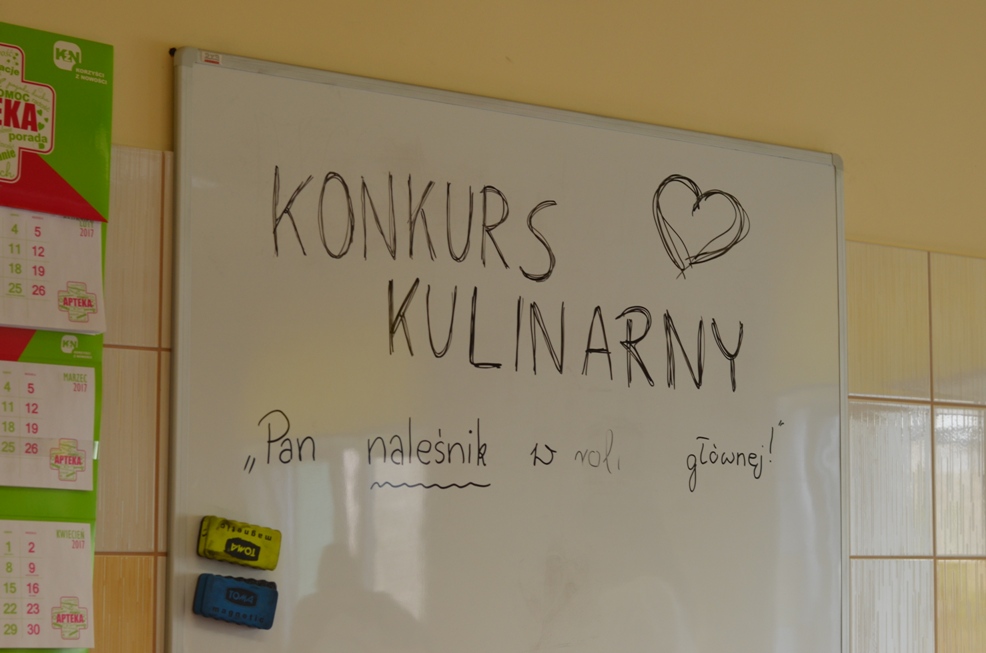 KONKURS
KULINARNY
„Pan naleśnik w roli głównej!"
K&N
KORZYŚCI
Z NOWOŚCI
porada
2017
4 5
11 12
18 19
25 26
APTEKA
MARZEC
2017
4 5
11 12
18 19
25 26
APTEKA
KWIECIEŃ
2017
1 2
8 9
15 16
22 23
29 30
APTEKA
magnetic
TOMA
TOMA
magnetic